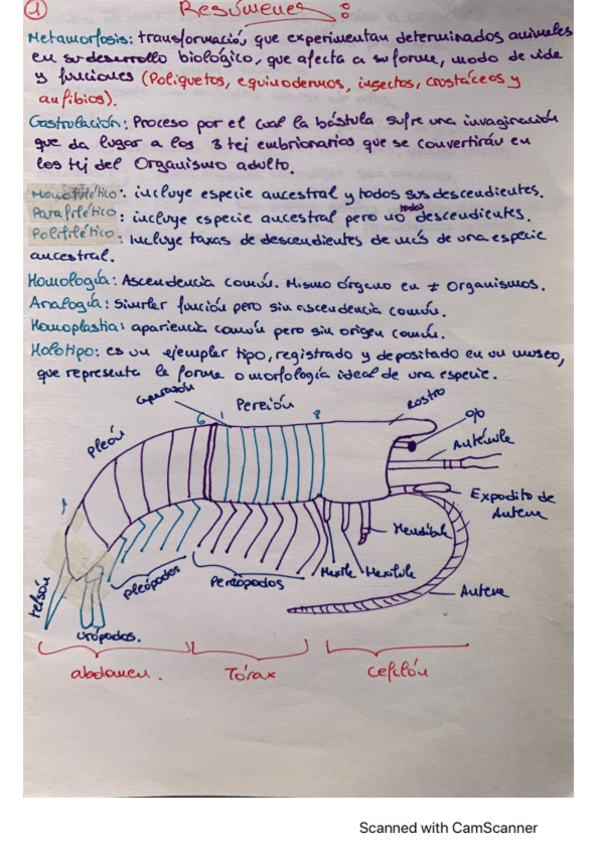 1
Resúmenes:
Metamorfosis: transformación, que experimentan determinados animales
en su desarrollo biológico, que afecta a su forma, modo de vida
y funciones (Poliquetos, equinodermos, insectos, crostáceos y
anfibios).
Gastrulación: Proceso por el cual la bástula sufre una invaginación
que da lugar a los 3 tej embrionarios que se convertirán en
los tej del Organismo adulto.
Monofilético: incluye especie ancestral y todos sus descendientes.
Parafilético: incluye especie ancestral pero no todos descendientes.
Polifilético: Incluye taxas de descendientes de más de una especie
ancestral.
Homología: Ascendencia común. Mismo órgano en ≠ Organismos.
Analogía: Similar función pero sin ascendencia común.
Homoplastia: apariencia común pero sin origen común.
Holotipo: es un ejemplar tipo, registrado y depositado en un museo,
que representa la forma o morfología ideal de una especie.
caparazón
Pereión
Rostro
6 1 8
ojo
Pleón
Anténula
1
Expodito de
Antena
Mandíbula
Maxila Maxílula
Pleópodos
Pereiópodos
Antena
telson
urópodos.
abdomen.
Tórax
Cefalón
Scanned with CamScanner